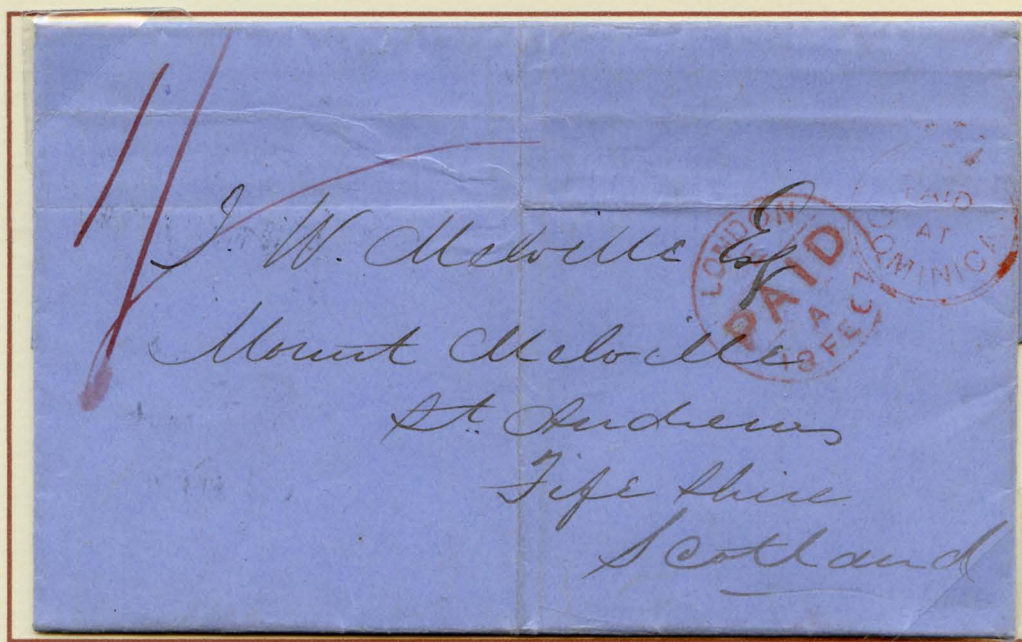 1/
J. W. Melville Esq
Mount Melville
St. Andrews
Fife Shire
Scotland
LONDON
PAID
A
PAID
AT
DOMINICA